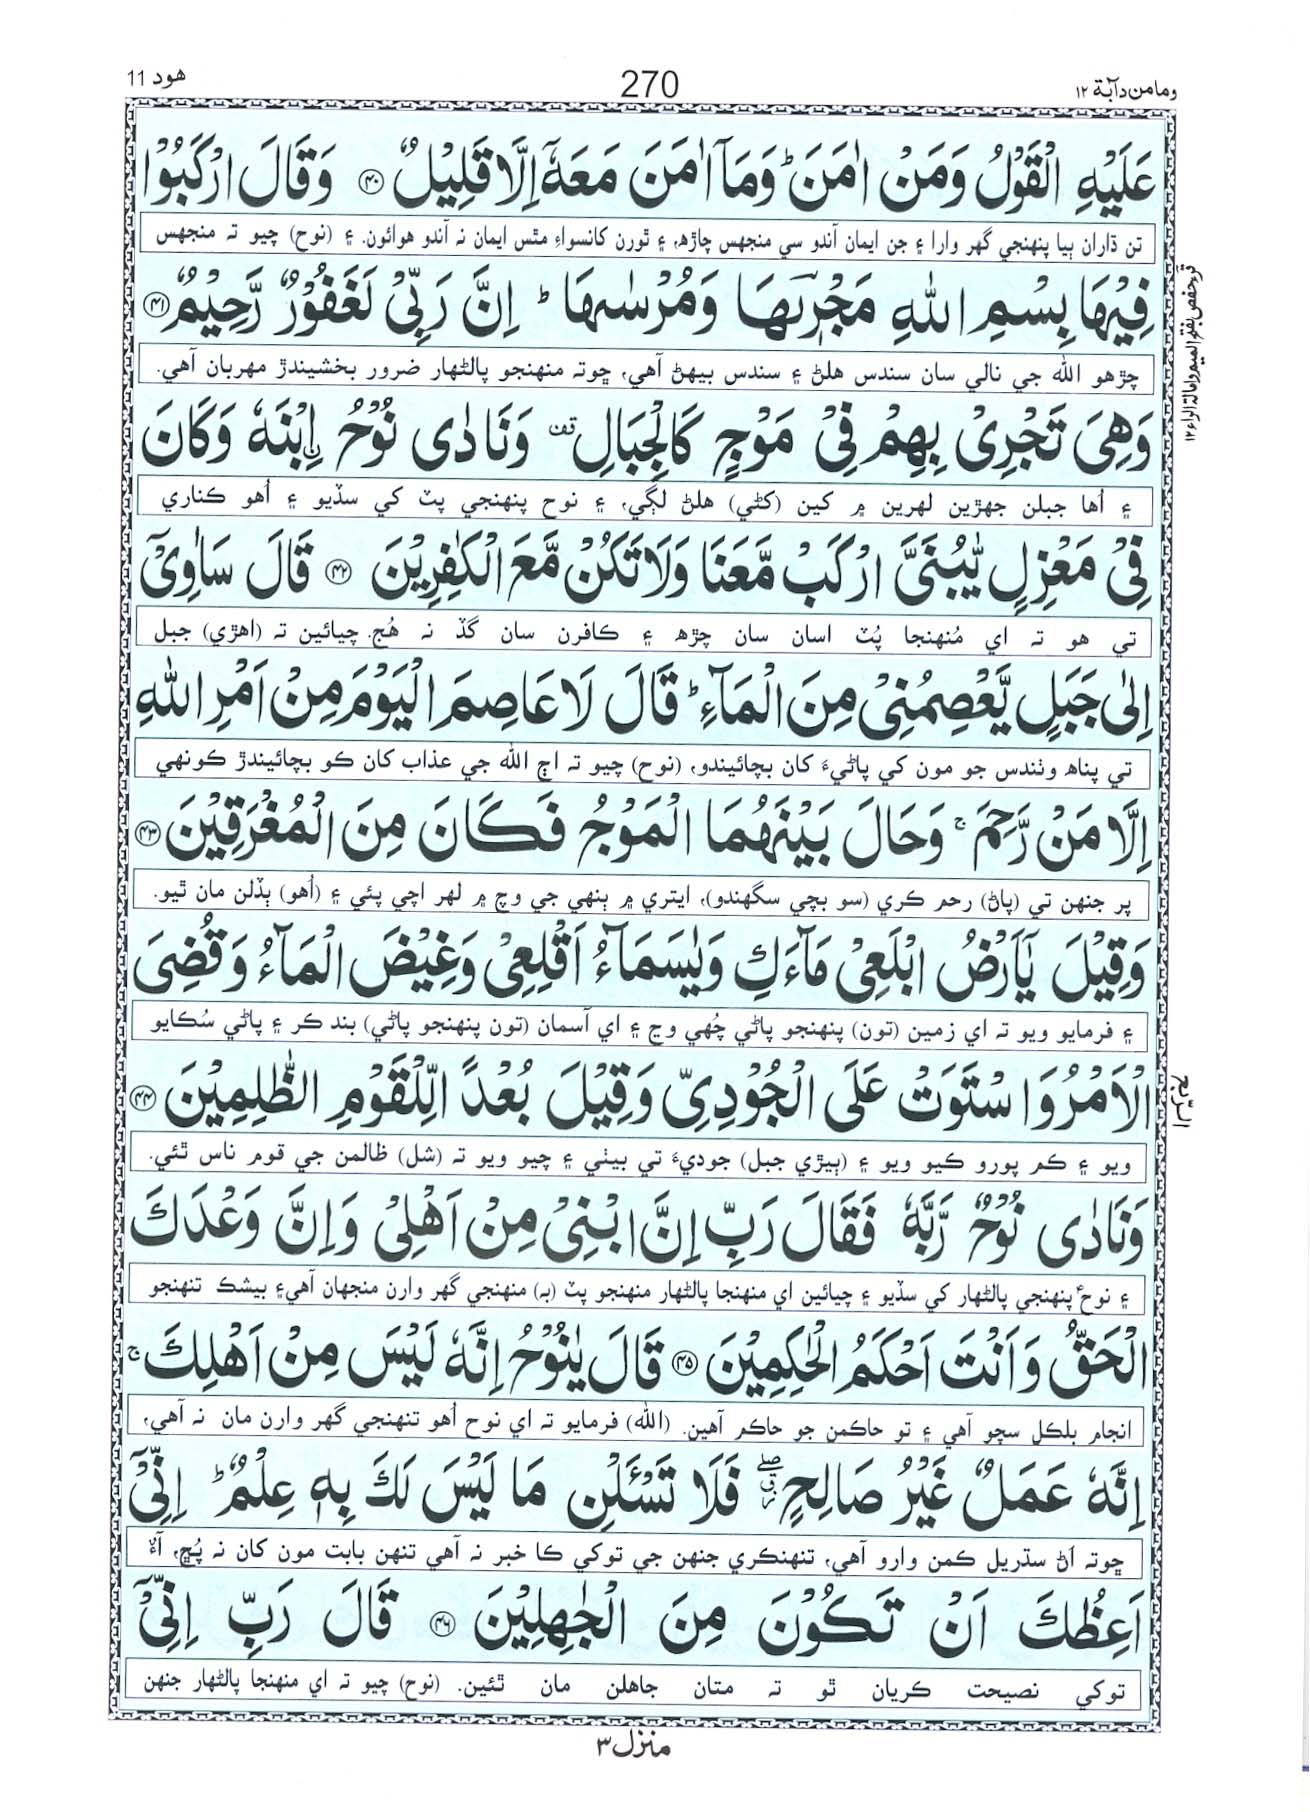 وما من دآبة ١٢
270
هود 11
عَلَيْهِ الْقَوْلُ وَمَنْ اٰمَنَ ؕ وَمَاۤ اٰمَنَ مَعَهٗۤ اِلَّا قَلِيْلٌ ﴿۴۰﴾ وَقَالَ ارْكَبُوْا
تن ڌاران ٻيا پنهنجي گهر وارا ۽ جن ايمان آندو سي منجهس چاڙهه، ۽ ٿورن کانسواءِ مٿس ايمان نہ آندو هوائون. ۽ (نوح) چيو تہ منجهس
فِيْهَا بِسْمِ اللّٰهِ مَجْرٖىهَا وَمُرْسٰىهَا ؕ اِنَّ رَبِّيْ لَغَفُوْرٌ رَّحِيْمٌ ﴿۴۱﴾
چڙهو الله جي نالي سان سندس هلڻ ۽ سندس بيهڻ آهي، ڇوتہ منهنجو پالڻهار ضرور بخشيندڙ مهربان آهي.
وَهِيَ تَجْرِيْ بِهِمْ فِيْ مَوْجٍ كَالْجِبَالِ قف وَنَادٰى نُوْحُ ۨابْنَهٗ وَكَانَ
۽ اُها جبلن جهڙين لهرين ۾ کين (کڻي) هلڻ لڳي، ۽ نوح پنهنجي پٽ کي سڏيو ۽ اُهو ڪناري
فِيْ مَعْزِلٍ يّٰبُنَيَّ ارْكَبْ مَّعَنَا وَلَا تَكُنْ مَّعَ الْكٰفِرِيْنَ ﴿۴۲﴾ قَالَ سَاٰوِيْۤ
تي هو تہ اي مُنهنجا پُٽ اسان سان چڙهه ۽ ڪافرن سان گڏ نہ هُج. چيائين تہ (اهڙي) جبل
اِلٰى جَبَلٍ يَّعْصِمُنِيْ مِنَ الْمَآءِ ؕ قَالَ لَا عَاصِمَ الْيَوْمَ مِنْ اَمْرِ اللّٰهِ
تي پناهه وٺندس جو مون کي پاڻيءَ کان بچائيندو، (نوح) چيو تہ اڄ الله جي عذاب کان ڪو بچائيندڙ ڪونهي
اِلَّا مَنْ رَّحِمَ ۚ وَحَالَ بَيْنَهُمَا الْمَوْجُ فَكَانَ مِنَ الْمُغْرَقِيْنَ ﴿۴۳﴾
پر جنهن تي (پاڻ) رحم ڪري (سو بچي سگهندو)، ايتري ۾ ٻنهي جي وچ ۾ لهر اچي پئي ۽ (اُهو) ٻڏلن مان ٿيو.
وَقِيْلَ يٰۤاَرْضُ ابْلَعِيْ مَآءَكِ وَيٰسَمَآءُ اَقْلِعِيْ وَغِيْضَ الْمَآءُ وَقُضِيَ
۽ فرمايو ويو تہ اي زمين (تون) پنهنجو پاڻي چُهي وڃ ۽ اي آسمان (تون پنهنجو پاڻي) بند ڪر ۽ پاڻي سُڪايو
الْاَمْرُ وَاسْتَوَتْ عَلَى الْجُوْدِيِّ وَقِيْلَ بُعْدًا لِّلْقَوْمِ الظّٰلِمِيْنَ ﴿۴۴﴾
ويو ۽ ڪم پورو ڪيو ويو ۽ (ٻيڙي جبل) جوديءَ تي بيٺي ۽ چيو ويو تہ (شل) ظالمن جي قوم ناس ٿئي.
وَنَادٰى نُوْحٌ رَّبَّهٗ فَقَالَ رَبِّ اِنَّ ابْنِيْ مِنْ اَهْلِيْ وَاِنَّ وَعْدَكَ
۽ نوحؑ پنهنجي پالڻهار کي سڏيو ۽ چيائين اي منهنجا پالڻهار منهنجو پٽ (بہ) منهنجي گهر وارن منجهان آهي۽ بيشڪ تنهنجو
الْحَقُّ وَاَنْتَ اَحْكَمُ الْحٰكِمِيْنَ ﴿۴۵﴾ قَالَ يٰنُوْحُ اِنَّهٗ لَيْسَ مِنْ اَهْلِكَ ۚ
انجام بلڪل سچو آهي ۽ تو حاڪمن جو حاڪم آهين. (الله) فرمايو تہ اي نوح اُهو تنهنجي گهر وارن مان نہ آهي،
اِنَّهٗ عَمَلٌ غَيْرُ صَالِحٍ فَلَا تَسْـَٔلْنِ مَا لَيْسَ لَكَ بِهٖ عِلْمٌ ؕ اِنِّيْۤ
ڇوتہ اَڻ سڌريل ڪمن وارو آهي، تنهنڪري جنهن جي توکي ڪا خبر نہ آهي تنهن بابت مون کان نہ پُڇ، آءٌ
اَعِظُكَ اَنْ تَكُوْنَ مِنَ الْجٰهِلِيْنَ ﴿۴۶﴾ قَالَ رَبِّ اِنِّيْۤ
توکي نصيحت ڪريان ٿو تہ متان جاهلن مان ٿئين. (نوح) چيو تہ اي منهنجا پالڻهار جنهن
قرء حفص بفتح الميم وامالة الراء ١٢
الربع
منزل ٣